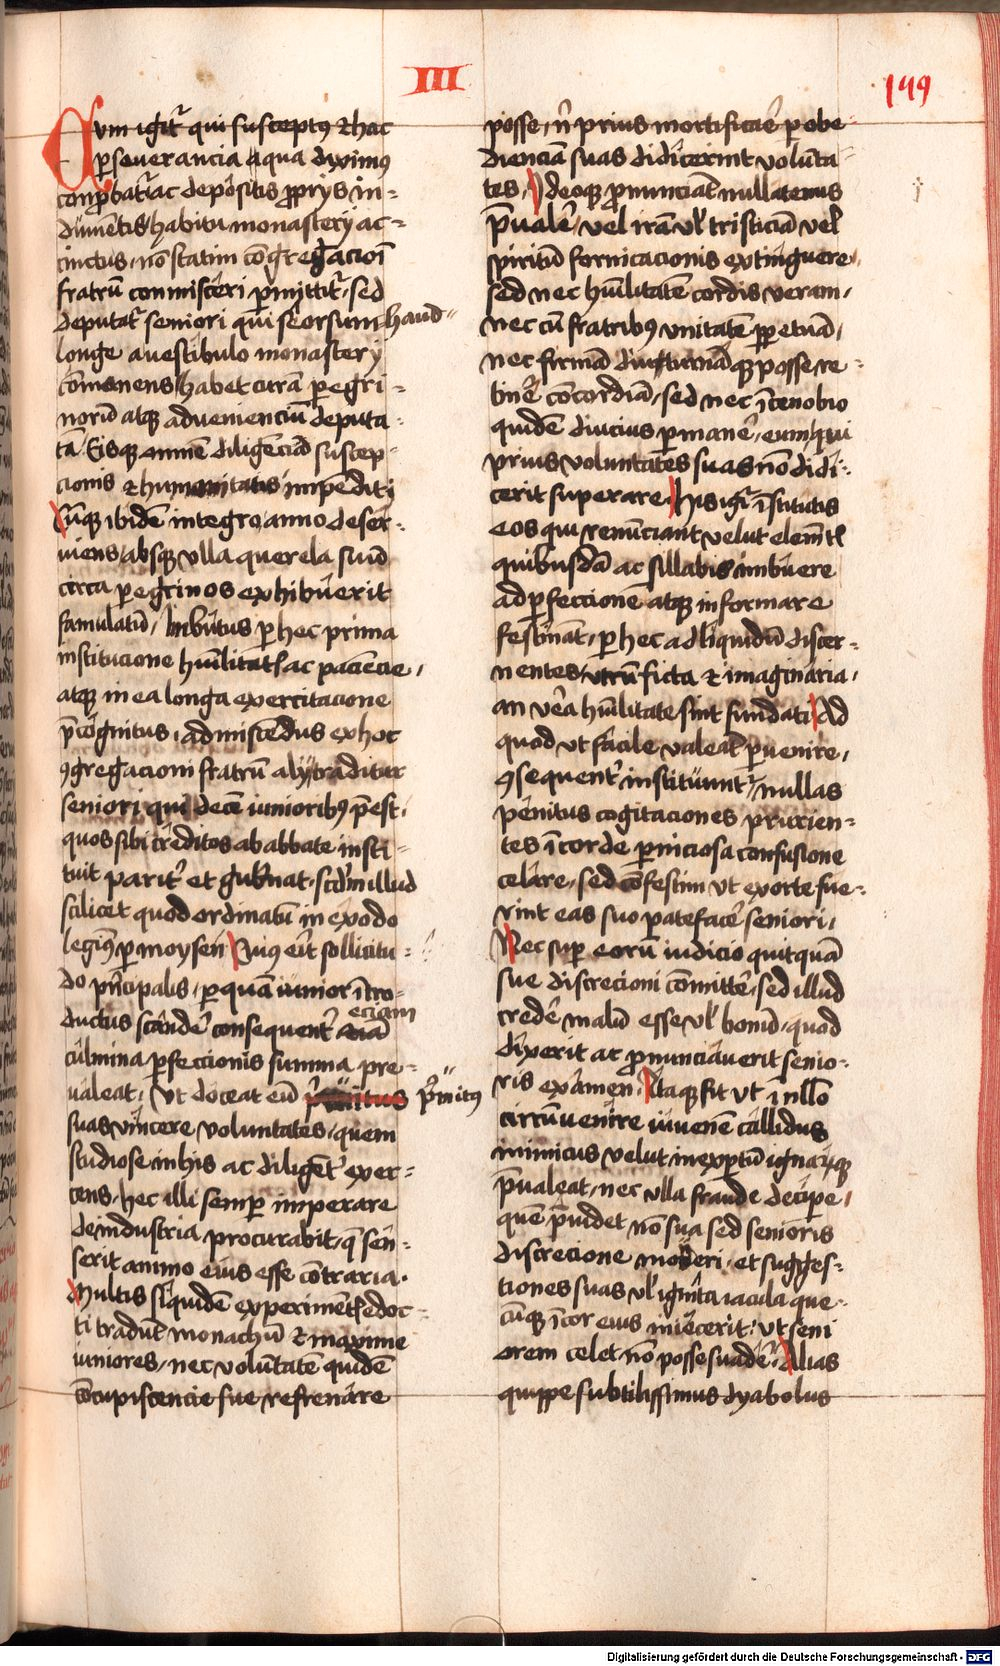 III
149
Cum igit̃ qui susceptꝯ & hac
ꝑseuerancia a qua diximꝯ
conꝓbat̃ ac depositis ꝓprijs in-
dumẽtis habitu monasterij ac-
cinctus, nõ statim cõgregacioĩ
fratrũ commisceri ꝑmittit̃, sed
deputat̃ seniori qui seorsum haud
longe a uestibulo monasterij
cõmanens habet curã ꝑegri-
norũ atqꝫ adueniencium deputa-
tã. Eisqꝫ omnẽ diligẽciã suscep-
cionis & humanitatis impendit,
Cũqꝫ ibidẽ integro anno deser-
uiens absqꝫ vlla querela suũ
circa ꝑegrinos exhibuerit
famulatũ, Imbutus ꝑ hec prima
institucione hũilitatꝭ ac paciẽcie,
atqꝫ in ea longa exercitacione
p̃cognitus, admiscẽdus ex hoc
ꝯgregacioni fratrũ alij traditur
seniori qui decẽ iunioribꝯ p̃est,
quos sibi creditos ab abbate insti-
tuit parit̃ et gub̃nat, scd̃m illud
scilicet quod ordinatũ in exodo
legimꝯ ꝑ moysen. Cuius erit sollicitu-
do p̃ncipalis, ꝑ quã iunior ĩtro-
ductus scander̃ consequent̃ eciam
culmina ꝑfeccionis summa pre-
ualeat, vt doceat eũ p̃mitꝯ
suas vincere voluntates, quem
studiose in his ac diligent̃ exer-
cens, hec illi semꝑ imperare
de industria procurabit, q̃ sen-
serit animo eius esse cõtraria.
Multis siquidẽ experimẽtꝭ edoc-
ti tradũt monachũ & maxime
iuniores, nec voluntatẽ quidẽ
cõcupiscencie sue refrenare
posse, ñ prius mortificar̃ ꝑ obe-
dienciã suas didicerint volunta-
tes, Ideoqꝫ ꝓnunciãt nullatenus
p̃ualer̃, vel irã vł tristiciã vel
spiritũ fornicacionis extinguere,
sed nec hũilitatẽ cordis veram,
nec cũ fratribꝯ vnitatẽ ꝑpetuã,
nec firmã diuturnãqꝫ posse re-
tiner̃ cõcordiã, sed nec ĩ cenobio
quidẽ diucius ꝑmaner̃, eum qui
prius voluntates suas nõ didi-
cerit superare. His igit̃ ĩstitutis
eos qui renunciant velut elemẽtꝭ
quibusdã ac sillabis imbuere
ad ꝑfeccionẽ atqꝫ informare
festinãt, ꝑ hec ad liquidũ discer-
nentes, vtrũ ficta & imaginaria,
an vera hũilitate sint fundati. Ad
quod vt facile valeãt ꝑuenire,
ꝯsequent̃ instituunt̃, nullas
penitus cogitaciones prurien-
tes ĩ corde ꝑniciosa confusione
celare, sed cõfestim vt exorte fue-
rint eas suo patefacer̃ seniori,
Nec suꝑ eorũ iudicio quitquã
sue discrecioni cõmitter̃, sed illud
creder̃ malũ esse vł bonũ, quod
dixerit ac ꝓnunciauerit senio-
ris examen. Itaqꝫ fit vt ĩ nłło
circũuenire iuuenẽ callidus
inimicus velut inexꝑtũ ignarũqꝫ
p̃ualeat, nec vlla fraude decipe,
quẽ p̃uidet nõ sua sed senioris
discrecione moderi, et sugges-
tiones suas vł ignita iacula que-
cũqꝫ ĩ cor eius iniecerit, vt seni
orem celet, nõ posse suader̃. Alias
quippe subtilissimus dyabolus
Digitalisierung gefördert durch die Deutsche Forschungsgemeinschaft - DFG